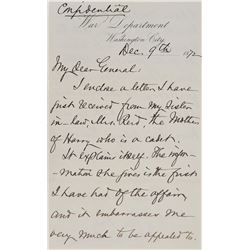 Confidential
War Department
Washington City
Dec. 9th 1872
My Dear General:
I enclose a letter I have
just received from my Sister
in-Law, Mrs. Reid, the Mother
of Harry who is a cadet.
It explains itself. The infor-
mation she gives is the first
I have had of the affair,
and it embarrasses me
very much to be appealed to.